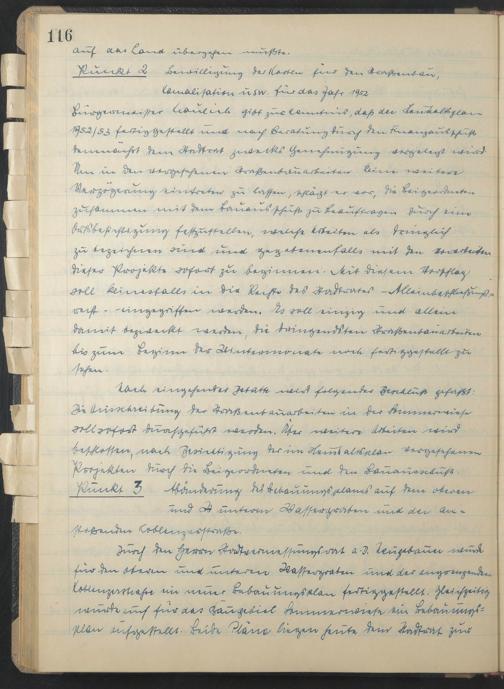 116
auf das Land übergehen müßte.
Punkt 2 Bewilligung der Kosten für den Straßenbau,
Canalisation usw. für das Jahr 1952
Bürgermeister gibt zur Kenntnis, daß der Haushaltsplan
1952/53 fertiggestellt und nach Beratung durch den Finanzausschuß
demnächst dem Stadtrat zwecks Genehmigung vorgelegt wird.
Um in den vorgesehenen Straßenbauarbeiten keine weitere
Verzögerung eintreten zu lassen, schlägt er vor, die Beigeordneten
zusammen mit dem Bauausschuß zu beauftragen durch eine
Ortsbesichtigung festzustellen, welche Arbeiten als dringlich
zu bezeichnen sind und gegebenenfalls mit den Vorarbeiten
dieser Projekte sofort zu beginnen. Mit diesem Vorschlag
soll keinesfalls in die Rechte des Stadtrates - Alleinbeschließungs-
recht - eingegriffen werden. Es soll einzig und allein
damit bezweckt werden, die dringendsten Straßenbauarbeiten
bis zum Beginn der Wintermonate noch fertiggestellt zu
sehen.
Nach eingehender Debatte wird folgender Beschluß gefaßt:
Die Ausschreibung der Straßenbauarbeiten in der Sommerwiese
soll sofort durchgeführt werden. Über weitere Arbeiten wird
beschlossen, nach Besichtigung der im Haushaltsplan vorgesehenen
Projekten durch die Beigeordneten und den Bauausschuß.
Punkt 3 Abänderung des Bebauungsplanes auf dem oberen
und unteren Wassergraben und der an-
stoßenden Coblenzerstraße.
Durch den Herrn Stadtvermessungsrat a.D. Neugebauer wurde
für den oberen und unteren Wassergraben und der angrenzenden
Coblenzerstraße ein neuer Bebauungsplan fertiggestellt. Gleichzeitig
wurde auch für das Baugebiet Sommerwiese ein Bebauungs-
plan aufgestellt. Beide Pläne liegen heute dem Stadtrat zur